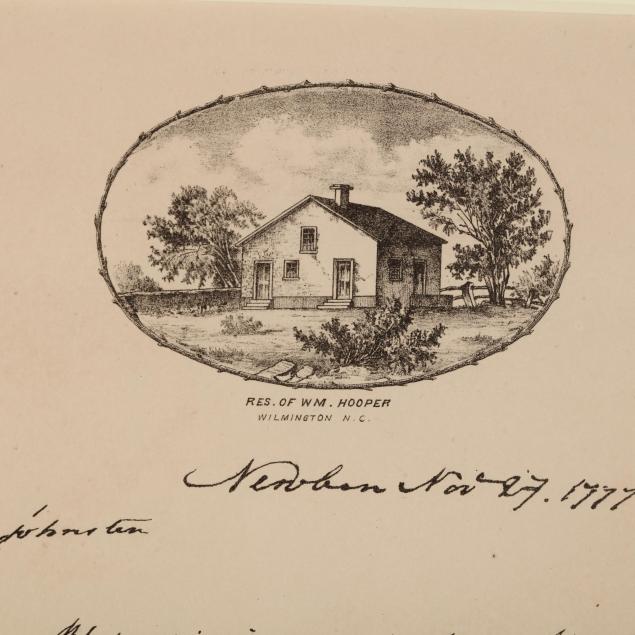 RES. OF WM. HOOPER
WILMINGTON N.C.
Newbern Nov 27. 1777
Johnston